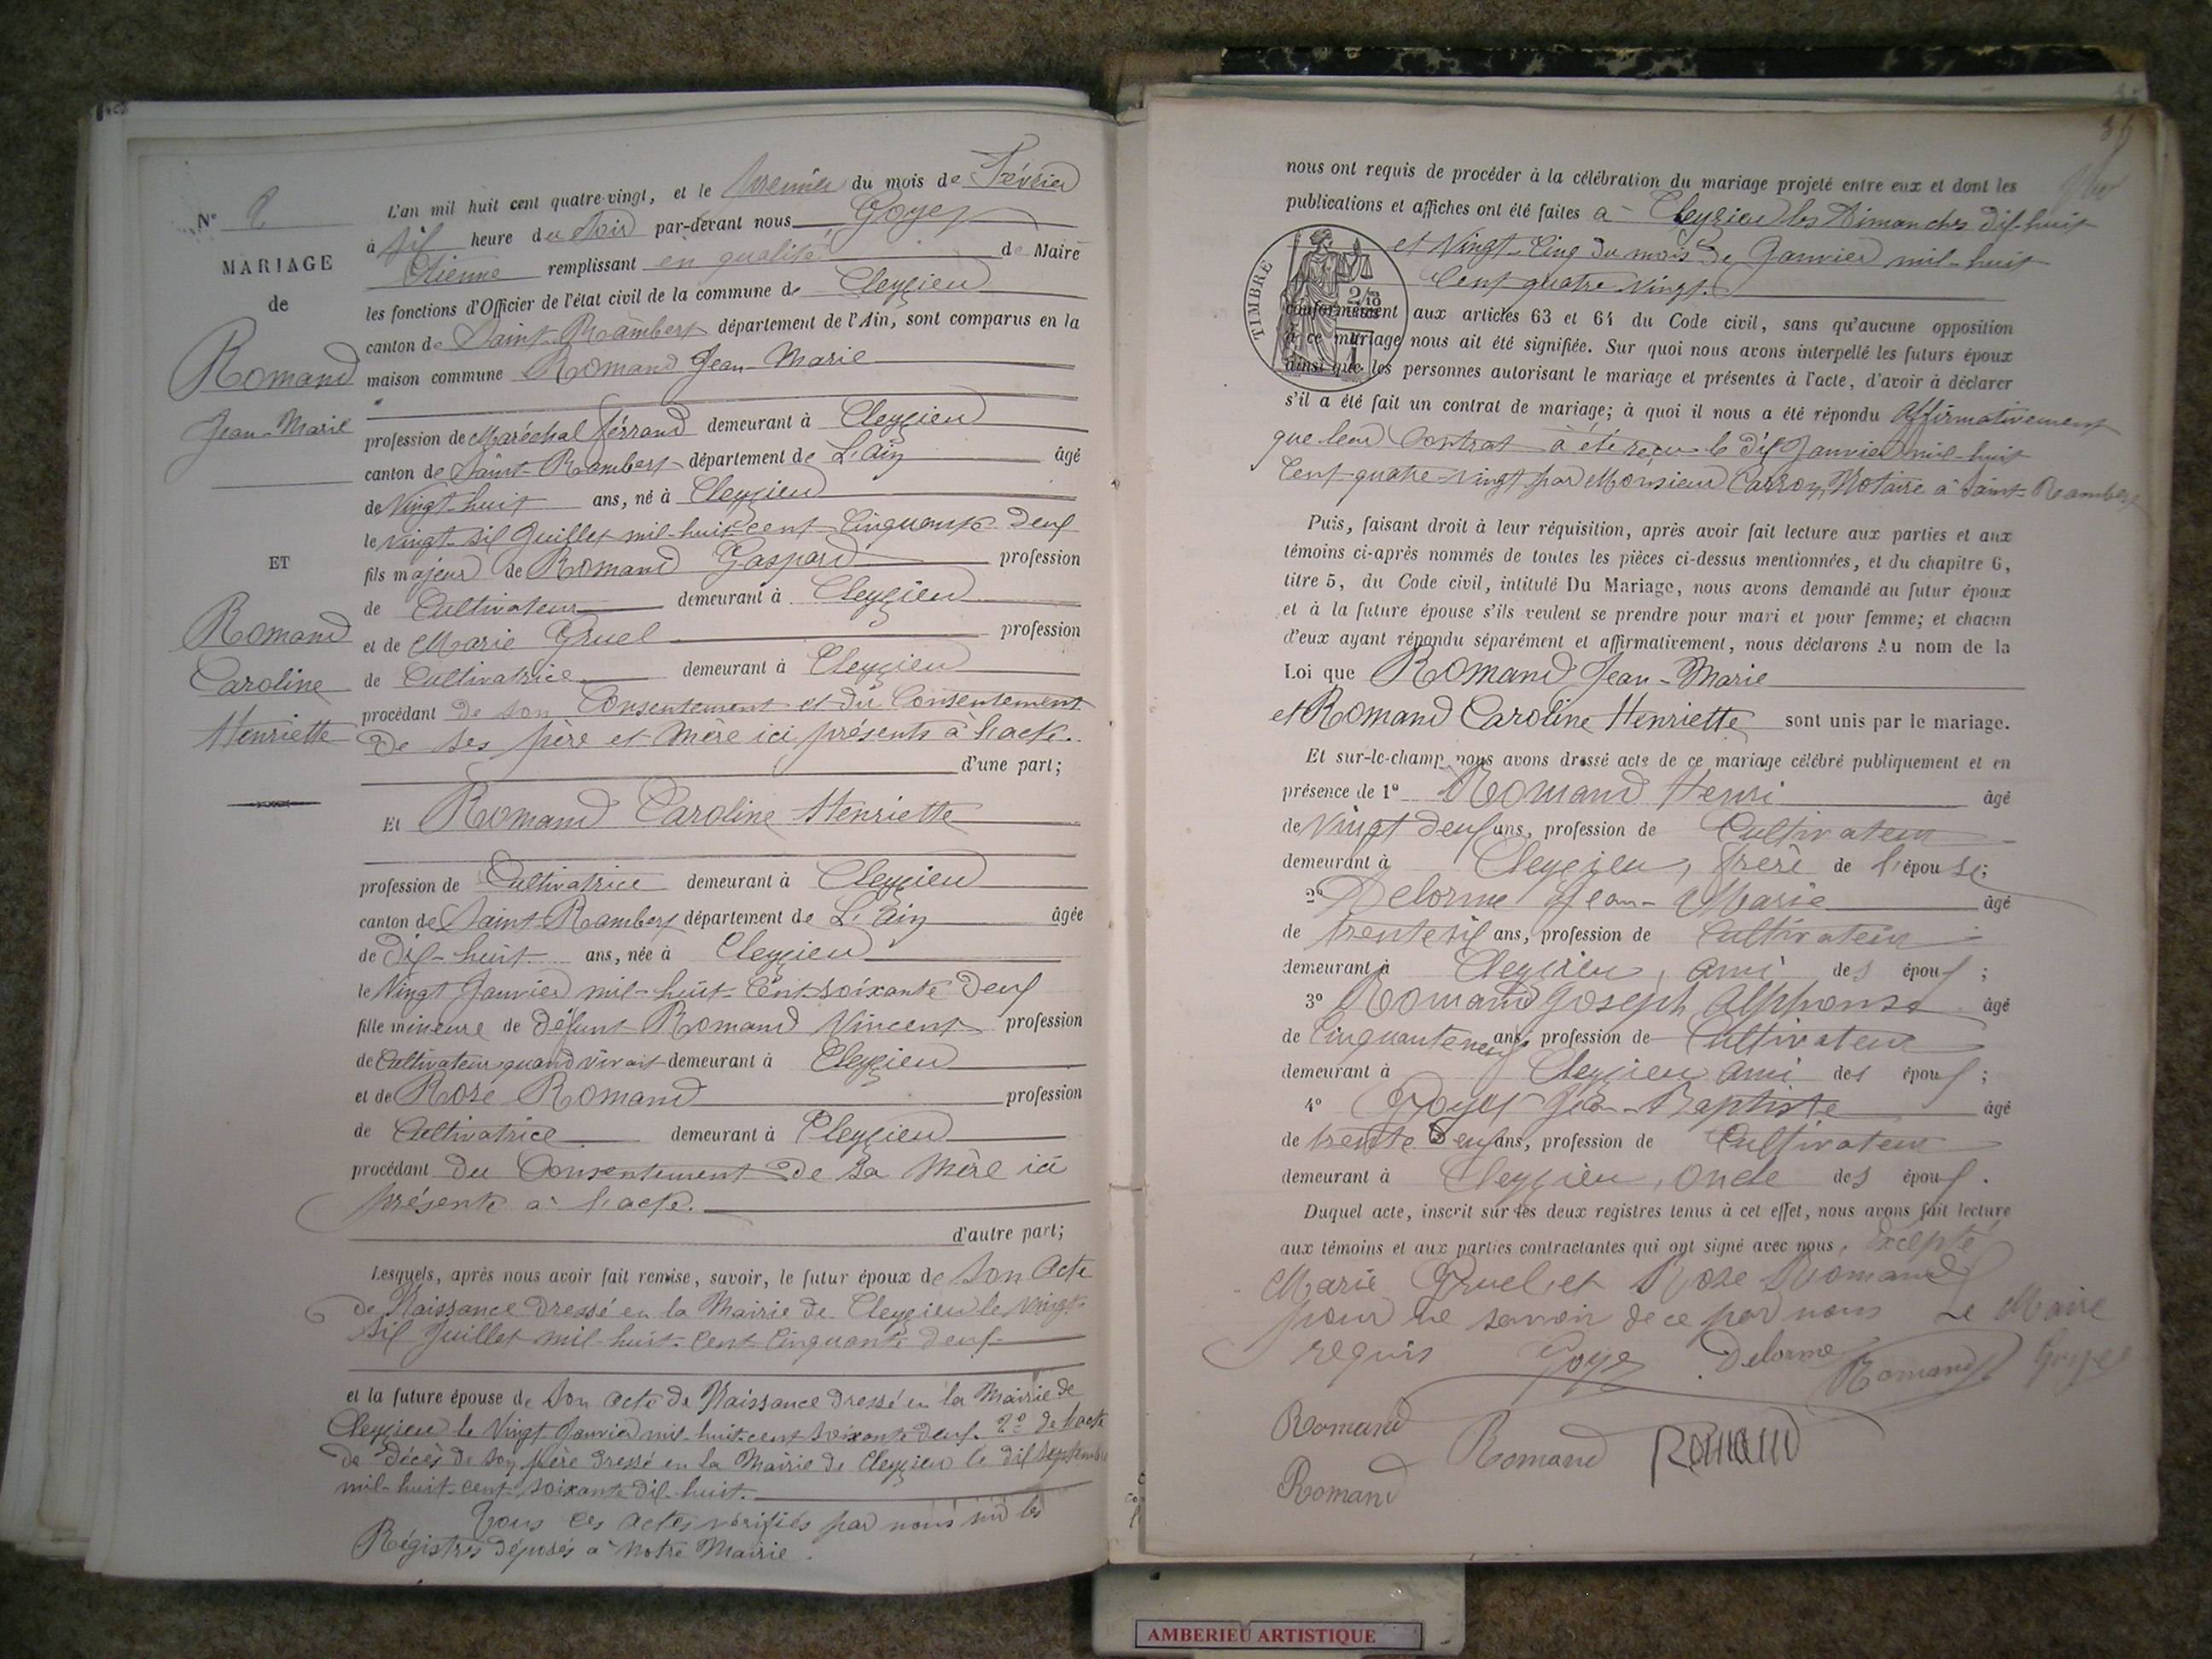 N° 2
MARIAGE
de
Romand
Jean-Marie
ET
Romand
Caroline
Henriette
L'an mil huit cent quatre-vingt, et le premier du mois de Février
à six heure du Soir par-devant nous Goyet
Etienne remplissant en qualité de Maire
les fonctions d'Officier de l'état civil de la commune de Cleyzieu
canton de Saint-Rambert département de l'Ain, sont comparus en la
maison commune Romand Jean-Marie
profession de Maréchal férrand demeurant à Cleyzieu
canton de Saint-Rambert département de L'Ain âgé
de Vingt-huit ans, né à Cleyzieu
le vingt-six Juillet mil-huit-cent-Cinquante-deux
fils majeur de Romand Gaspard profession
de Cultivateur demeurant à Cleyzieu
et de Marie Gruel profession
de Cultivatrice demeurant à Cleyzieu
procédant de son Consentement et du Consentement
de ses père et mère ici présents à l'acte.
d'une part;
Et Romand Caroline Henriette
profession de Cultivatrice demeurant à Cleyzieu
canton de Saint-Rambert département de L'Ain âgée
de Dix-huit ans, née à Cleyzieu
le Vingt Janvier mil-huit-Cent-soixante Deux
fille mineure de défunt Romand Vincent profession
de Cultivateur quand vivait demeurant à Cleyzieu
et de Rose Romand profession
de Cultivatrice demeurant à Cleyzieu
procédant du Consentement de sa mère ici
présente à l'acte.
d'autre part;
Lesquels, après nous avoir fait remise, savoir, le futur époux de son Acte
de Naissance dressé en la Mairie de Cleyzieu le vingt-
six Juillet mil-huit-Cent-Cinquante deux
et la future épouse de son acte de Naissance dressé en la Mairie de
Cleyzieu le Vingt Janvier mil-huit-cent soixante deux. 2° de l'acte
de décès de son père dressé en la Mairie de Cleyzieu le dix septembre
mil-huit-cent-soixante dix-huit.
Tous ces actes vérifiés par nous sur les
Régistres déposés à notre Mairie.
nous ont requis de procéder à la célébration du mariage projeté entre eux et dont les
publications et affiches ont été faites à Cleyzieu les Dimanches dix-huit
et Vingt-Cinq du mois de Janvier mil-huit
Cent quatre vingt.
TIMBRE
conformément aux articles 63 et 64 du Code civil, sans qu'aucune opposition
à ce mariage nous ait été signifiée. Sur quoi nous avons interpellé les futurs époux
ainsi que les personnes autorisant le mariage et présentes à l'acte, d'avoir à déclarer
s'il a été fait un contrat de mariage; à quoi il nous a été répondu affirmativement
que leur Contrat à été reçu le dix Janvier mil-huit
Cent-quatre-vingt par Monsieur Carron, Notaire à Saint-Rambert
Puis, faisant droit à leur réquisition, après avoir fait lecture aux parties et aux
témoins ci-après nommés de toutes les pièces ci-dessus mentionnées, et du chapitre 6,
titre 5, du Code civil, intitulé Du Mariage, nous avons demandé au futur époux
et à la future épouse s'ils veulent se prendre pour mari et pour femme; et chacun
d'eux ayant répondu séparément et affirmativement, nous déclarons Au nom de la
Loi que Romand Jean-Marie
et Romand Caroline Henriette sont unis par le mariage.
Et sur-le-champ nous avons dressé acte de ce mariage célébré publiquement et en
présence de 1° Romand Henri âgé
de Vingt deux ans, profession de Cultivateur
demeurant à Cleyzieu, frère de l'épouse;
2° Delorme Jean-Marie âgé
de trente six ans, profession de Cultivateur
demeurant à Cleyzieu, ami des époux;
3° Romand Joseph Alphonse âgé
de Cinquante neuf ans, profession de Cultivateur
demeurant à Cleyzieu ami des époux;
4° Goyet Jean-Baptiste âgé
de trente Deux ans, profession de Cultivateur
demeurant à Cleyzieu, oncle des époux.
Duquel acte, inscrit sur les deux registres tenus à cet effet, nous avons fait lecture
aux témoins et aux parties contractantes qui ont signé avec nous, Excepté
Marie Gruel et Rose Romand
pour ne savoir de ce par nous Le Maire
requis Goyet Delorme Romand Goyet
Romand Romand ROMAND
Romand
AMBERIEU ARTISTIQUE